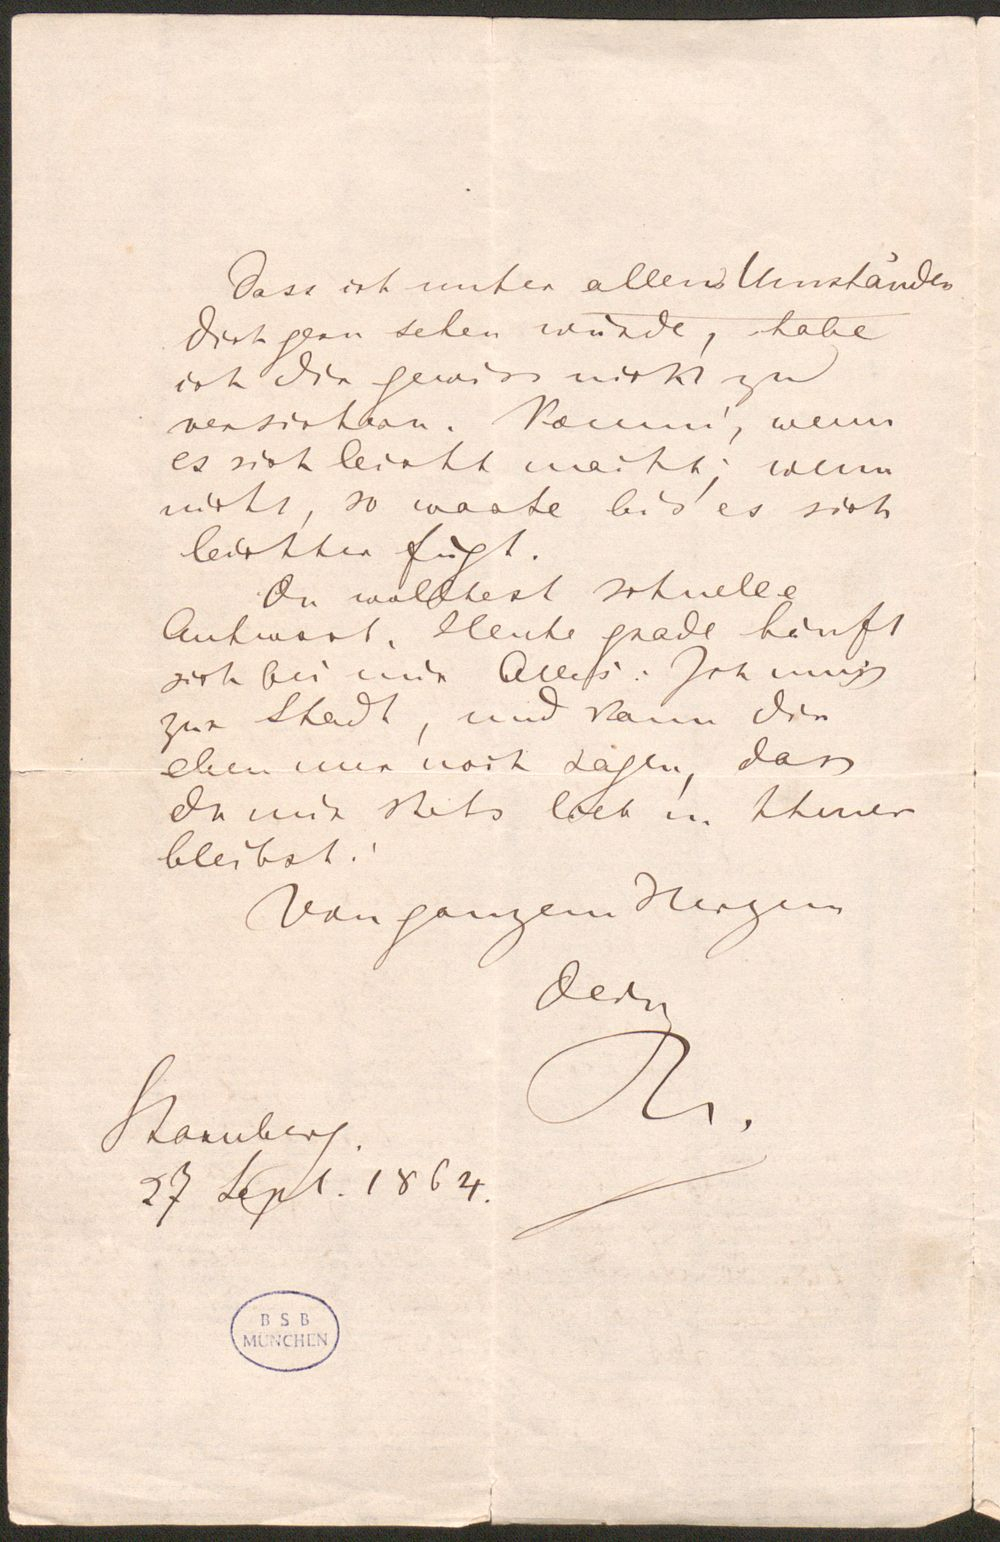 Dass ich unter allen Umständen
Dich gern sehen würde, habe
ich Dir gewiss nicht zu
versichern. Komm', wenn
es sich leicht macht; wenn
nicht, so warte bis es sich
leichter fügt.
Du wolltest schnelle
Antwort. Heute grade häuft
sich bei mir Alles: Ich muss
zur Stadt, und kann Dir
eben nur noch sagen, dass
Du mir stets lieb u. theuer
bleibst!
Von ganzem Herzen
Dein
R.
Starnberg.
27 Sept. 1864.
BSB
MÜNCHEN